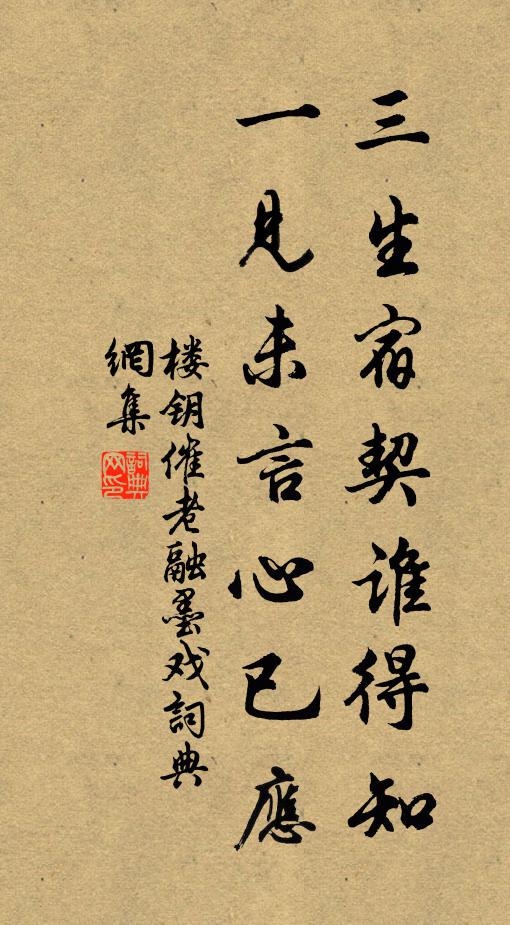 三生宿契谁得知
一见未言心已應
楼钥催老融墨戏詞典
網集
詞典
网印